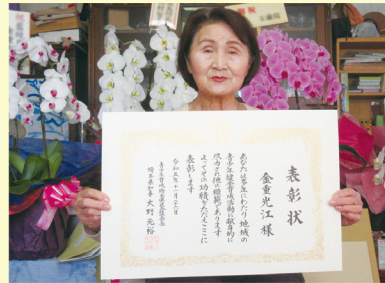 表彰状
金重光江様
あなたは多年にわたり地域の
青少年健全育成活動に献身的に
尽力され他の模範であります
よってその功績をたたえここに
表彰します
令和五年十一月二十一日
埼玉県知事 大野元裕
祝